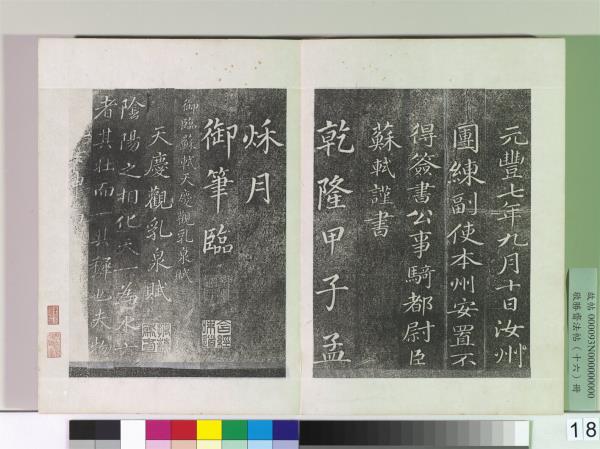 元豐七年九月十日汝州
團練副使本州安置不
得簽書公事騎都尉臣
蘇軾謹書
乾隆甲子孟
秌月
御筆臨
御臨蘇軾天慶觀乳泉賦
天慶觀乳泉賦
陰陽之相化天一為水六
者其壯而一其穉也夫物
故帖 000093N000000000
敬勝齋法帖(十六)冊
18